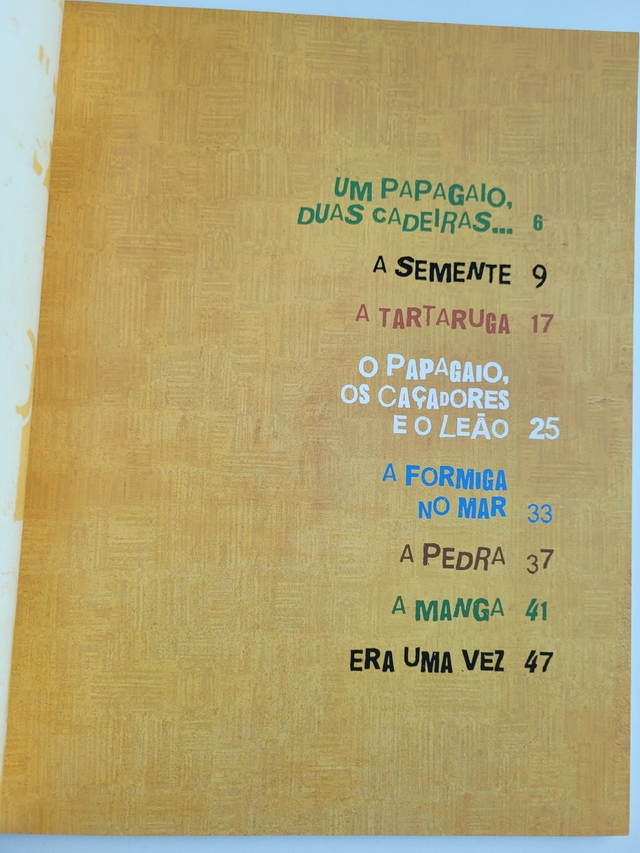 UM PAPAGAIO,
DUAS CADEIRAS... 6
A SEMENTE 9
A TARTARUGA 17
O PAPAGAIO,
OS CAÇADORES
E O LEÃO 25
A FORMIGA
NO MAR 33
A PEDRA 37
A MANGA 41
ERA UMA VEZ 47